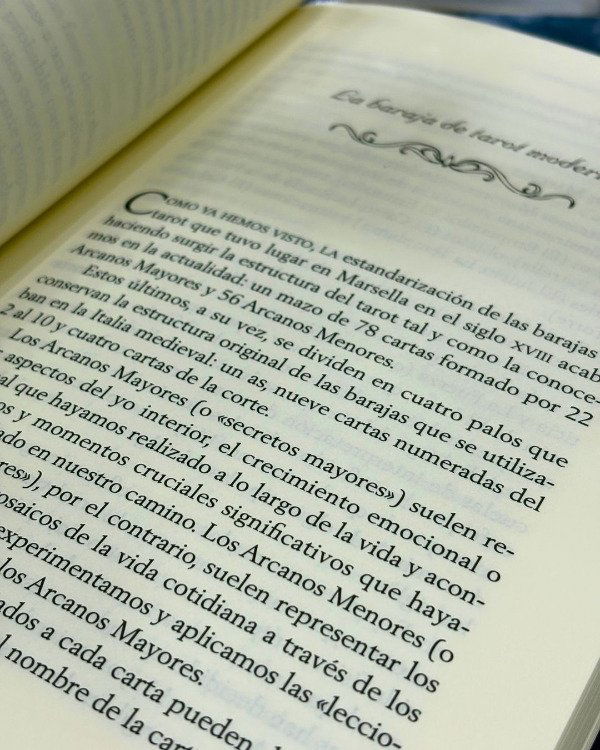 La baraja de tarot modern
COMO YA HEMOS VISTO, LA estandarización de las barajas
tarot que tuvo lugar en Marsella en el siglo XVIII acab
haciendo surgir la estructura del tarot tal y como la conoce-
mos en la actualidad: un mazo de 78 cartas formado por 22
Arcanos Mayores y 56 Arcanos Menores.
Estos últimos, a su vez, se dividen en cuatro palos que
conservan la estructura original de las barajas que se utiliza-
ban en la Italia medieval: un as, nueve cartas numeradas del
2 al 10 y cuatro cartas de la corte.
Los Arcanos Mayores (o «secretos mayores») suelen re-
aspectos del yo interior, el crecimiento emocional o
al que hayamos realizado a lo largo de la vida y acon-
os y momentos cruciales significativos que haya-
ado en nuestro camino. Los Arcanos Menores (o
res»), por el contrario, suelen representar los
osaicos de la vida cotidiana a través de los
experimentamos y aplicamos las «leccio-
los Arcanos Mayores.
ados a cada carta pueden
l nombre de la carta